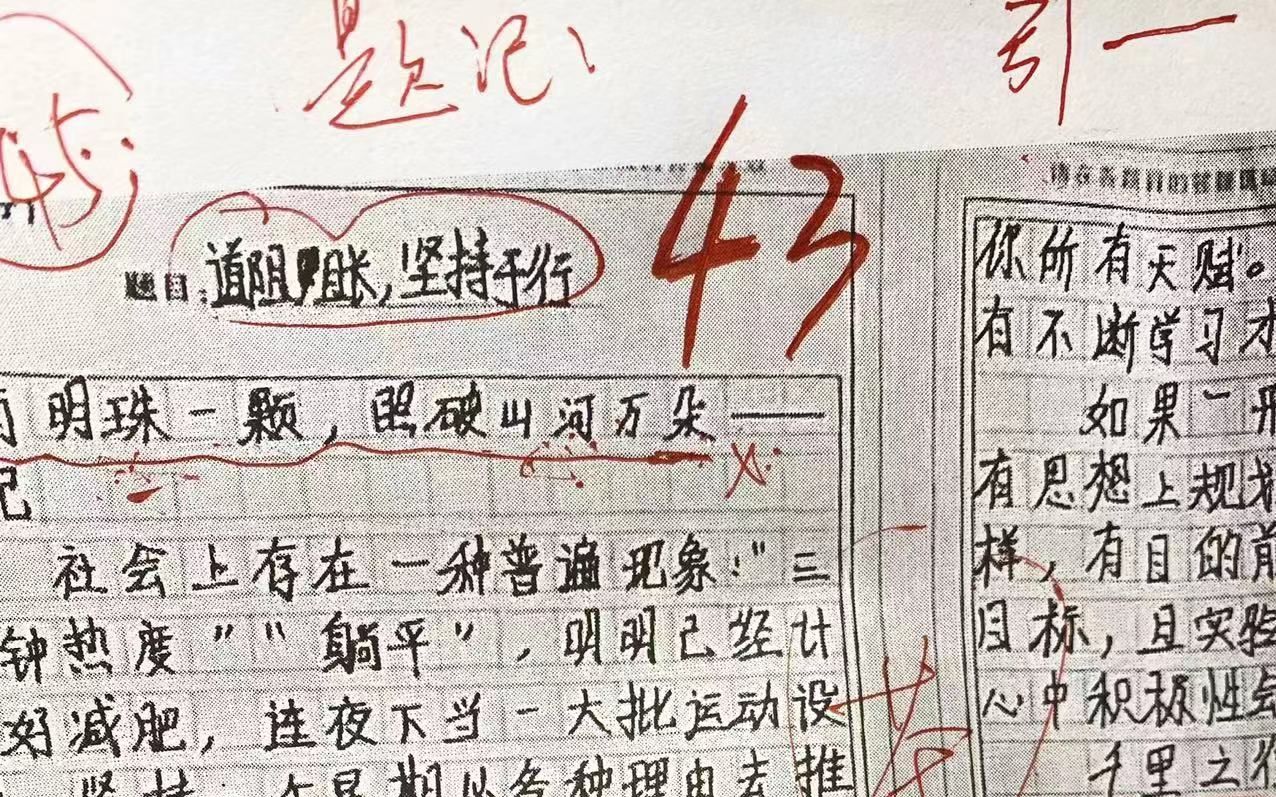 题记、
引一
45
43
题目：道阻且长，坚持于行
明珠一颗，照破山河万朵——
记
社会上存在一种普遍现象："三
钟热度""躺平"，明明已经计
好减肥，连夜下当一大批运动设
坚持一个星期以各种理由去推
你所有天赋。
有不断学习才
如果"开
有思想上规划
样，有目的前
目标，且实验
心中积极性会
千里之行